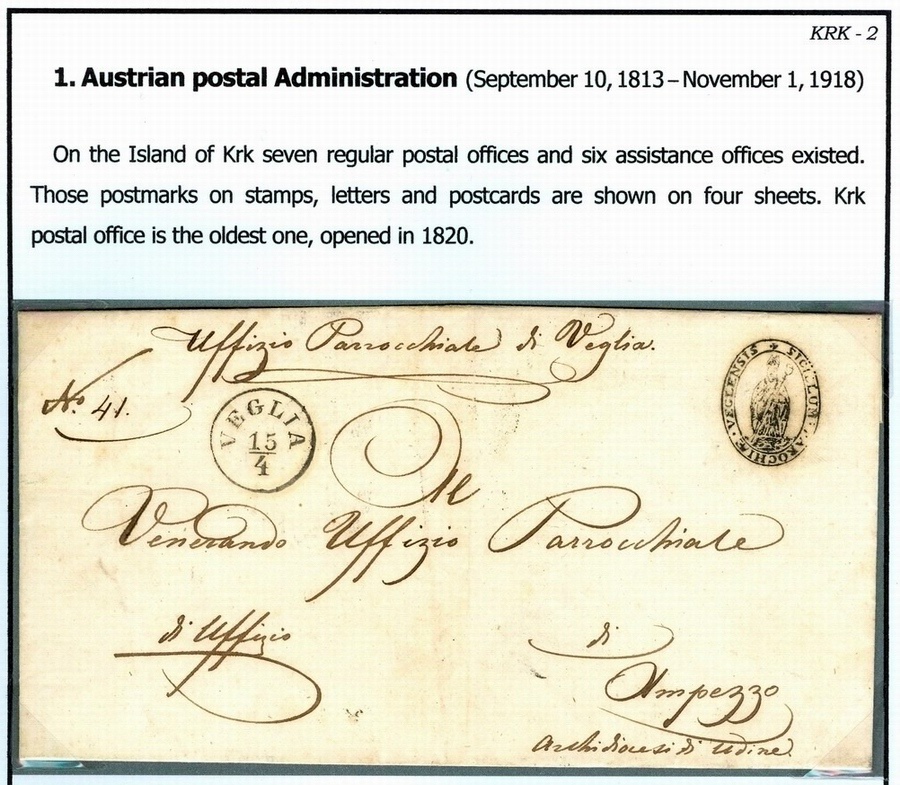 KRK - 2
1. Austrian postal Administration (September 10, 1813 – November 1, 1918)
On the Island of Krk seven regular postal offices and six assistance offices existed.
Those postmarks on stamps, letters and postcards are shown on four sheets. Krk
postal office is the oldest one, opened in 1820.
Uffizio Parrocchiale di Veglia.
SIGILLUM PAROCHIÆ VEGLENSIS
No 41.
VEGLIA
15
4
Al
Venerando Uffizio Parrocchiale
di Uffizio
di
Ampezzo
Archidiocesi di Udine.